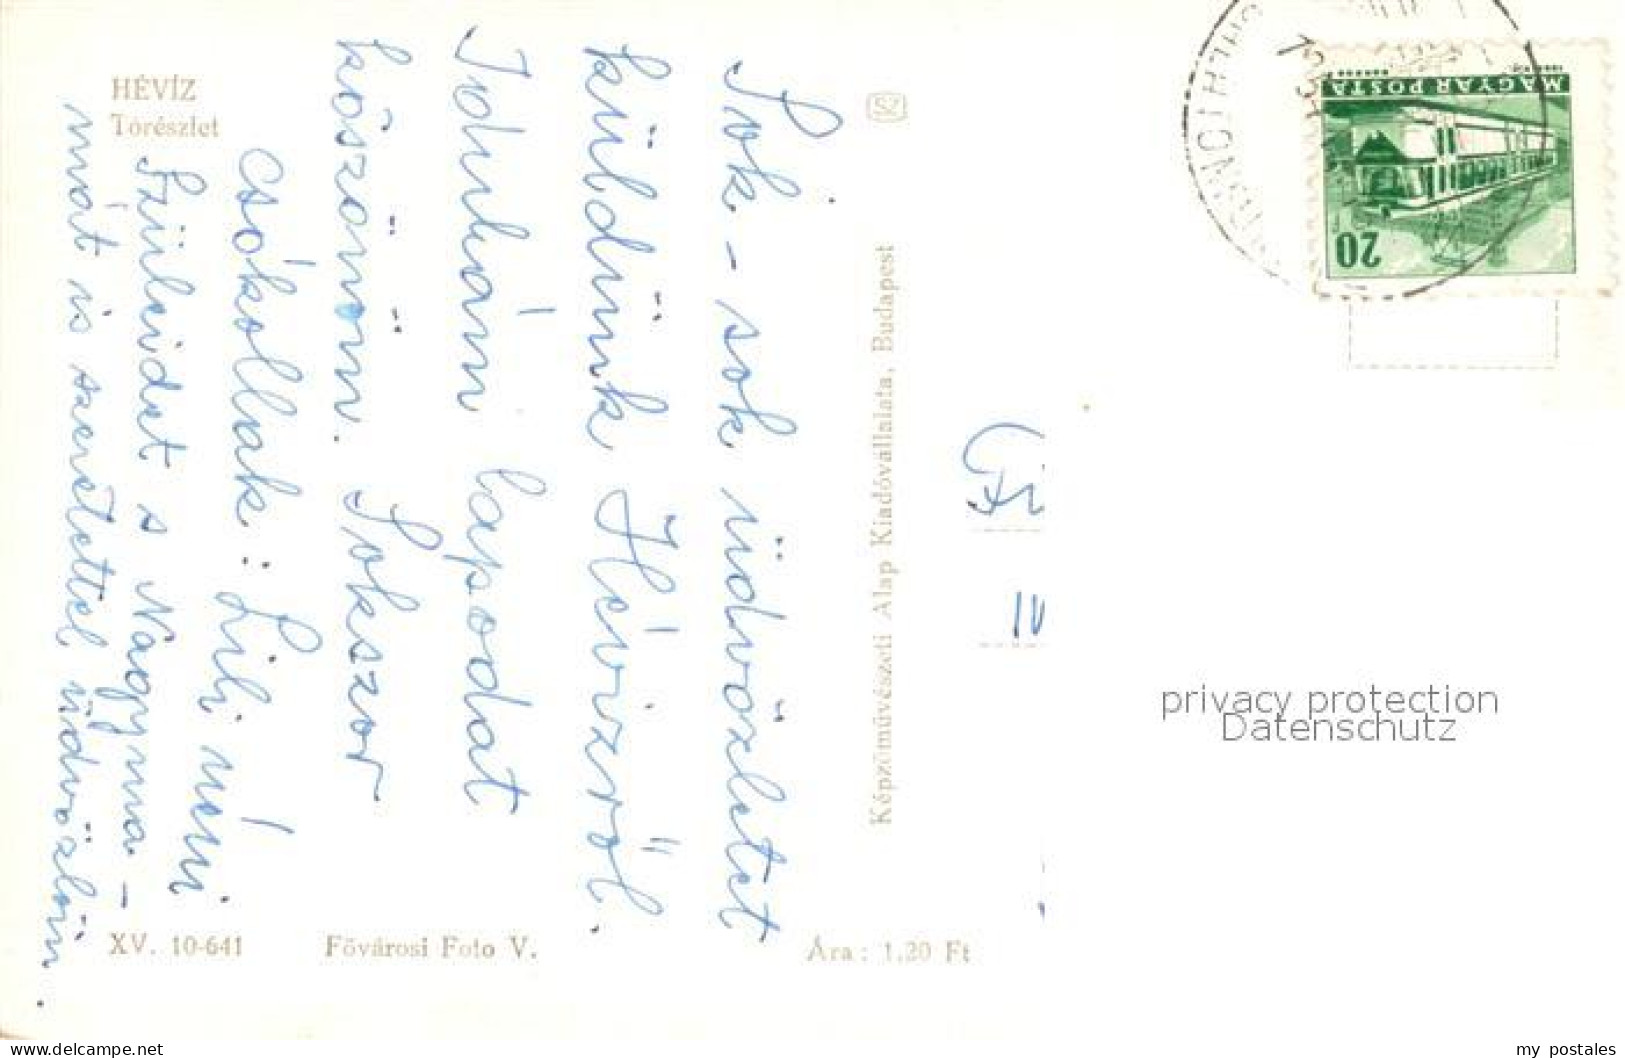 HÉVÍZ
Tórészlet
Sok-sok üdvözletet
küldünk Hévízről.
Iduskám lapodat
köszönöm. Sokszor
csókollak: Lili néni
Szüleidet s Nagyma-
mát is szeretettel üdvözlöm.
XV. 10-641
Fővárosi Foto V.
Ára: 1,20 Ft
Képzőművészeti Alap Kiadóvállalata, Budapest
SZ
MAGYAR POSTA
20
privacy protection
Datenschutz
delcampe.net
my_postales